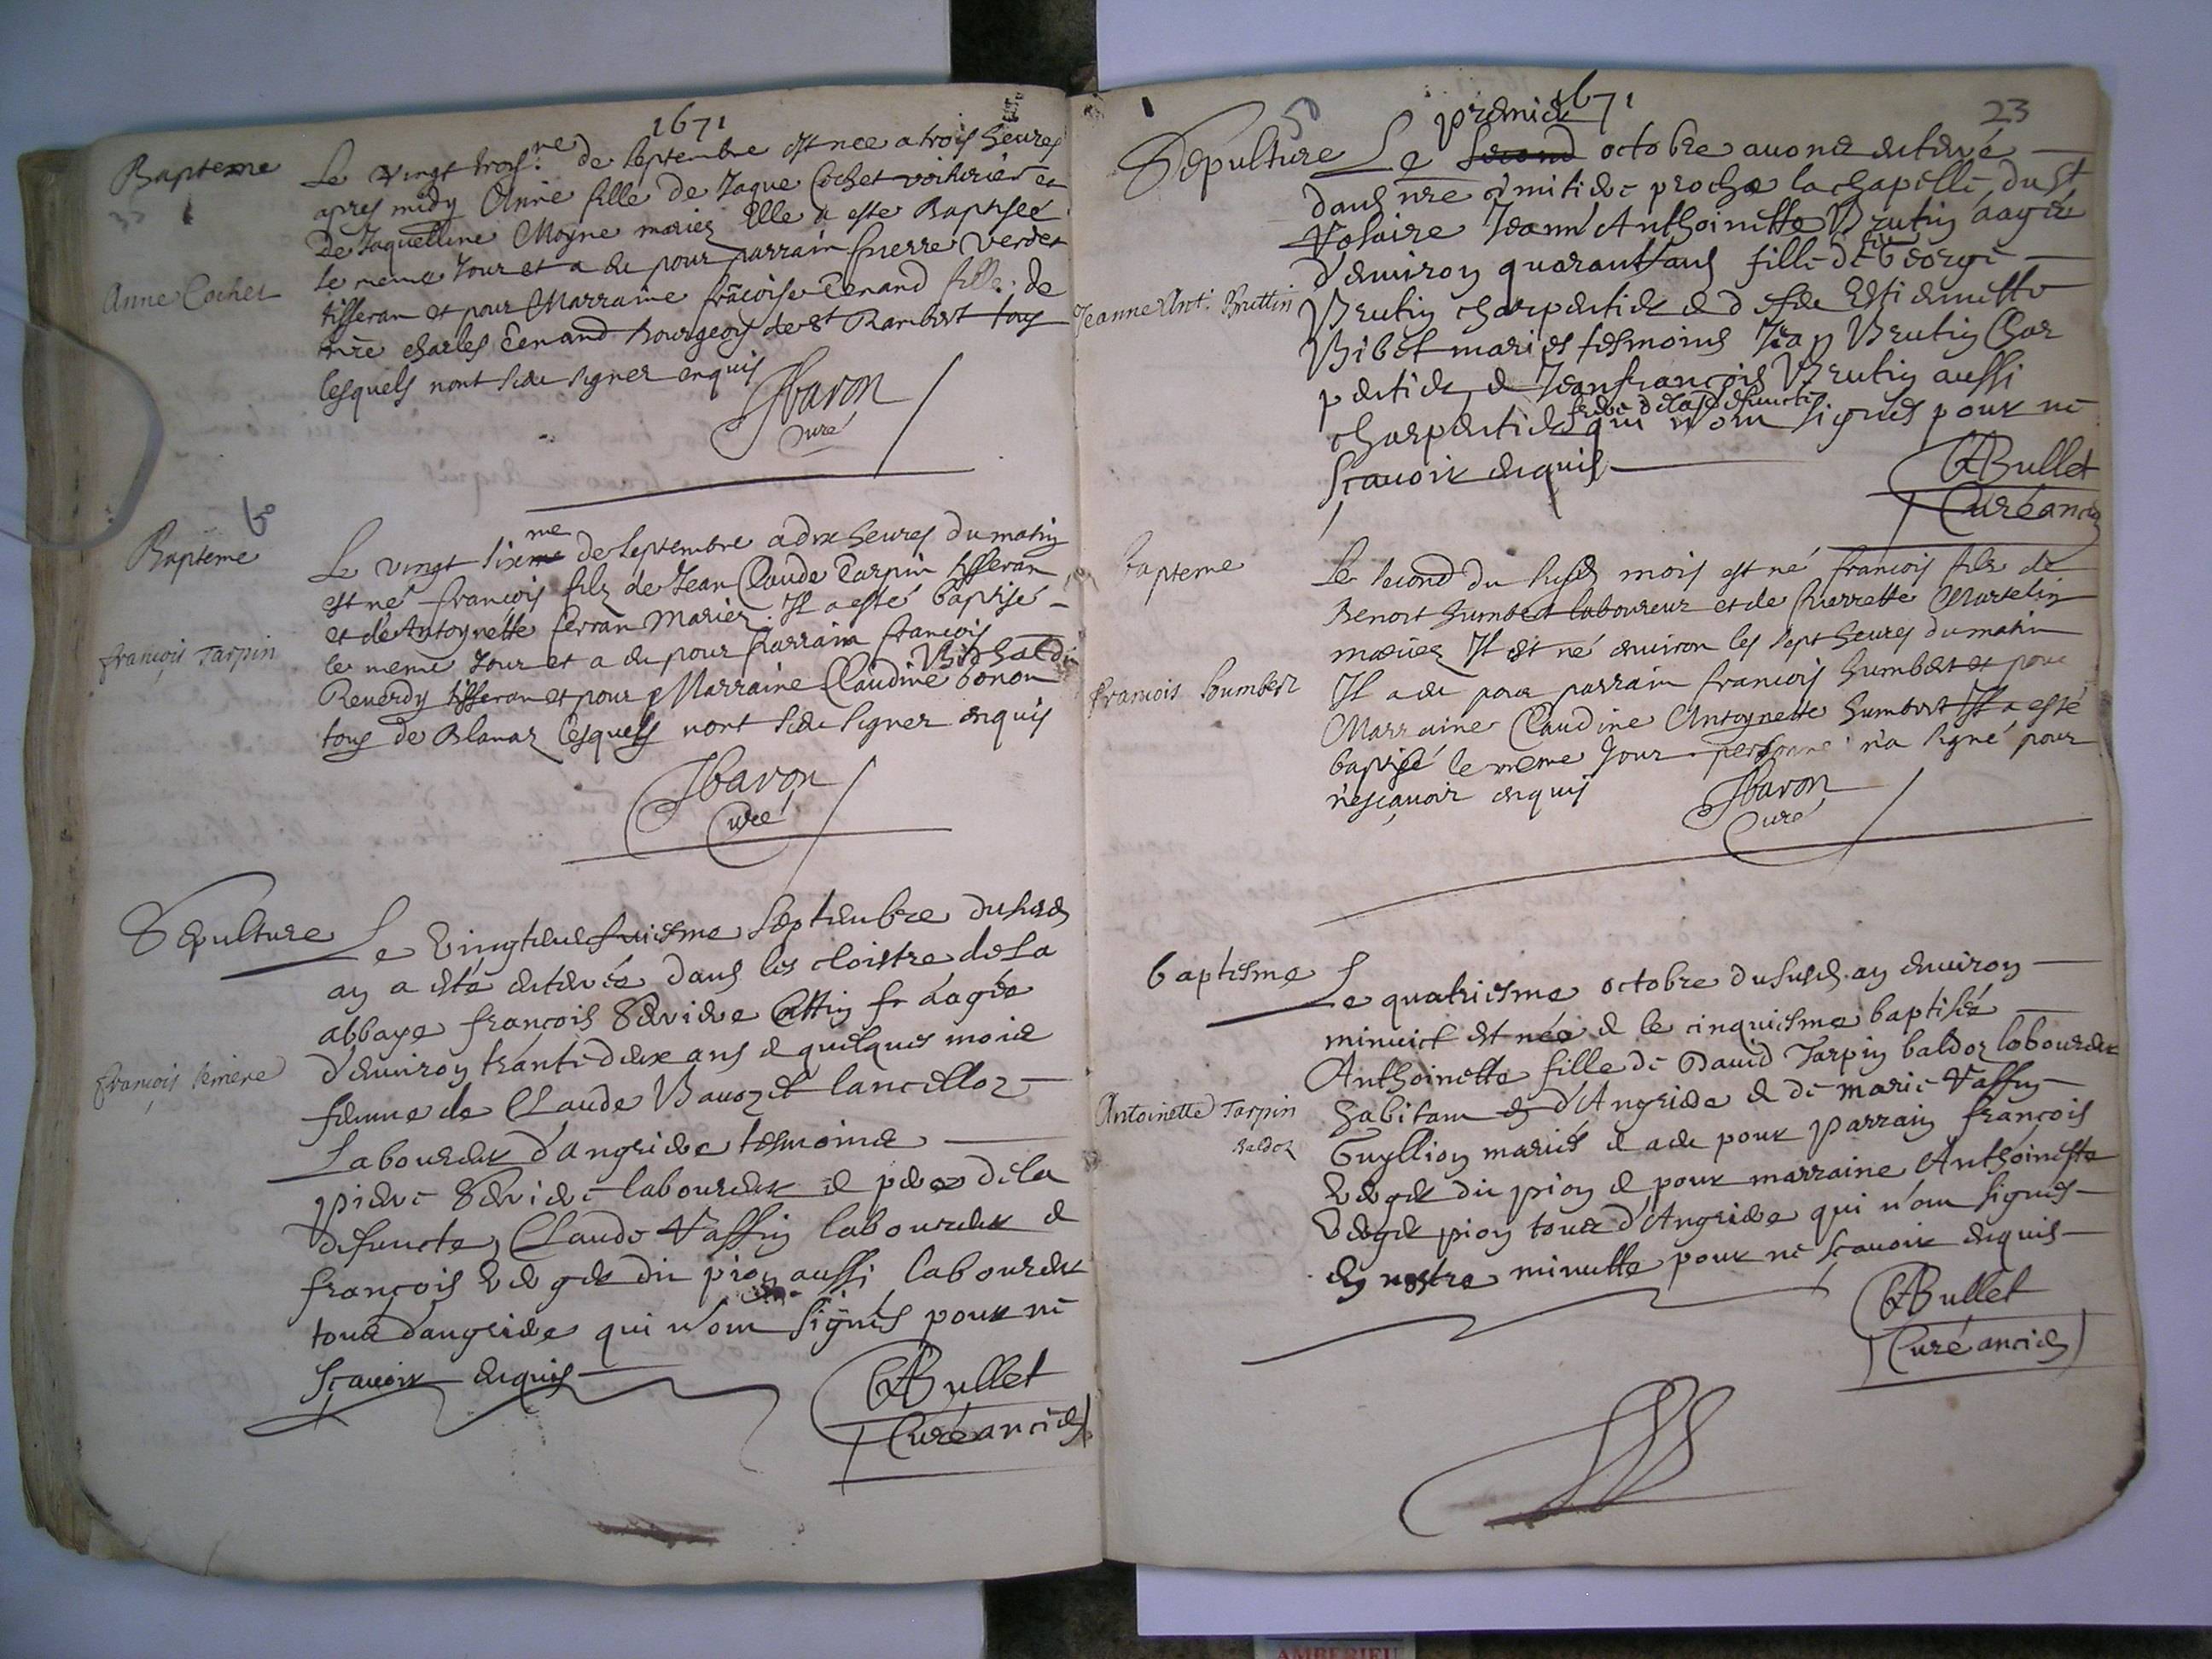 1671
Bapteme
Le vingt trois.me de Septembre est nee a trois heures
apres midy Anne fille de Jaque Cochet voiturier et
De Jaquelline Moyne mariez Elle a este Baptisée
Anne Cochet
le meme Jour et a eu pour parrain pierre Verdet
tisseran et pour Marraine frãcoise Tenand fille de
mre charles Tenand bourgeois de st Rambert tous
lesquels nont sceu signer enquis
JBaron
Curé
Bapteme
Le vingt sixme me de Septembre a dix heures du matin
est né francois filz de Jean Claude Tarpin tisseran
et de Antoynette ferran Mariez. Il a esté baptisé
françois Tarpin
le meme Jour et a eu pour parrain francois
Reverdy tisseran et pour Marraine Claudine bonon
tous de Blanaz lesquels nont sceu signer enquis
JBaron
Curé
Sepulture
Le vingtneufuiesme Septembre dususd
an a esté enterrée dans les cloistre de la
abbaye françois Serviere Cattin fe aagée
d'environ trante deux ans et quelques mois
françois serviere
femme de Claude Bavozet lancelloz
Laboureur d'angriere tesmoins
pierre Serviere laboureur et pere de la
defuncte, Claude Vassin laboureur et
françois verger dit pion aussi laboureur
tous d'angriere qui n'ont signés pour ne
sçavoir enquis
CABullet
Curé ancien
1671
23
50
premier
Sepulture
Le second octobre avons enterré
dans nre cimitiere proche la chapelle du St
Volaire Jeanne Anthoinette Brutin aagée
d'environ quarant'ans fille de feu George
Jeanne Ant. Bruttin
Brutin charpentier et de feue Estiennette
Bibet mariés tesmoins Jean Brutin Char
pentier, et Jean françois Brutin aussi
frere de lad defuncte
charpentier qui n'ont signés pour ne
sçavoir enquis
CABullet
Curé ancien
bapteme
Le second du susd mois est né francois filz de
Benoit humbert laboureur et de pierrette Martelin
mariez Il est né environ les sept heures du matin
francois humbert
Il a eu pour parrain francois humbert et pour
Marraine Claudine Antoynette humbert Il a esté
baptisé le meme Jour personne n'a signé pour
ne sçavoir enquis
JBaron
Curé
baptesme
Le quatriesme octobre dususd an environ
minuict est née et le cinquiesme baptisée
Anthoinette fille de David Tarpin baldoz laboureur
Antoinette Tarpin
Baldoz
habitant d'Angriere et de marie Vassin
Guyllion mariés et a eu pour parrain françois
verger dit pion et pour marraine Anthoinette
verger pion tous d'Angriere qui n'ont signés
en nostre minutte pour ne sçavoir enquis
CABullet
Curé ancien
AMBERIEU